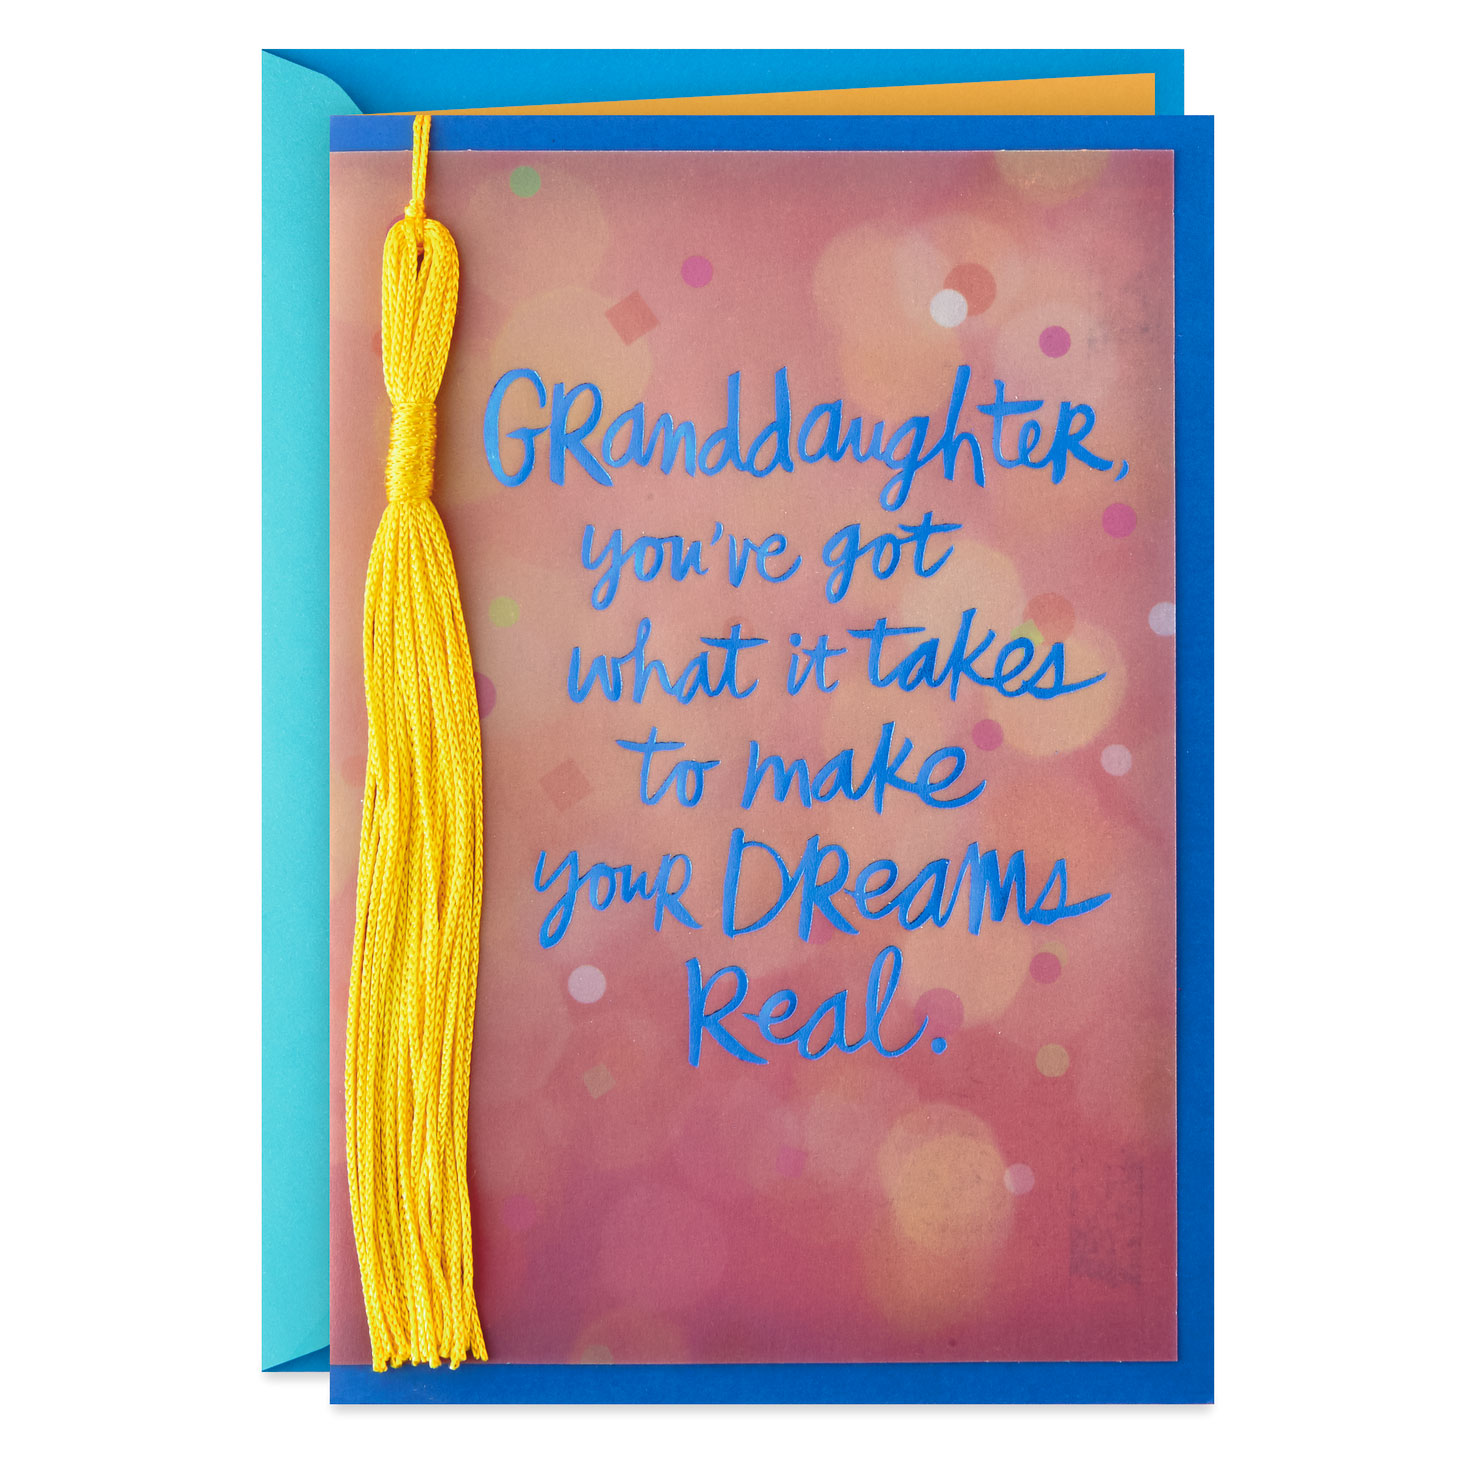 Granddaughter,
you've got
what it takes
to make
your Dreams
Real.